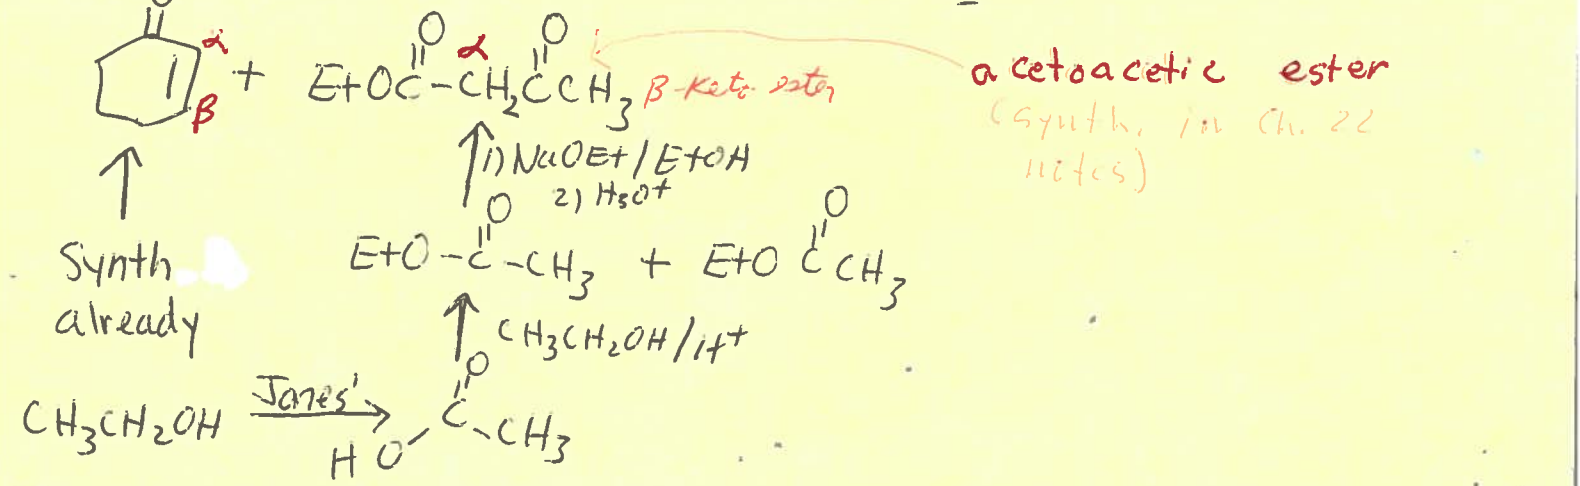 O
α
β
+
EtOC-CH₂CCH₃
O O
α
β-keto ester
acetoacetic ester
(synth. in Ch. 22
notes)
1) NaOEt/EtOH
2) H₃O+
Synth
already
O O
EtO-C-CH₃ + EtO C CH₃
CH₃CH₂OH/H+
CH₃CH₂OH Jones'
O
HO C CH₃